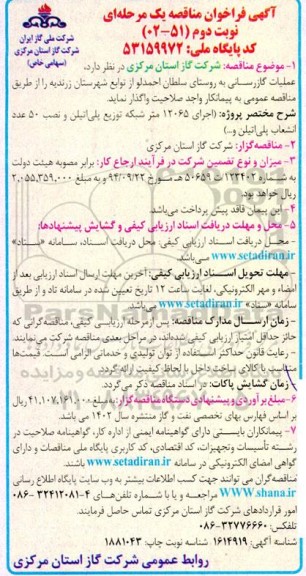 آگهی فراخوان مناقصه یک مرحله‌ای
نوبت دوم (۵۱-۰۲)
کد پایگاه ملی: ۵۳۱۵۹۹۷۲
شرکت ملی گاز ایران
شرکت گاز استان مرکزی
(سهامی خاص)
۱-موضوع مناقصه: شرکت گاز استان مرکزی در نظر دارد،
عملیات گازرسانی به روستای سلطان احمدلو از توابع شهرستان زرندیه را از طریق
مناقصه عمومی به پیمانکار واجد صلاحیت واگذار نماید.
شرح مختصر پروژه: (اجرای ۱۲۰۶۵ متر شبکه توزیع پلی‌اتیلن و نصب ۵۰ عدد
انشعاب پلی‌اتیلن و...)
۲-مناقصه‌گزار: شرکت گاز استان مرکزی
۳-میزان و نوع تضمین شرکت در فرآیند ارجاع کار: برابر مصوبه هیئت دولت
به شماره ۱۲۳۴۰۲/ت ۵۰۶۵۹ هـ مورخ ۹۴/۰۹/۲۲ و به مبلغ ۲,۰۵۵,۳۵۹,۰۰۰
ریال خواهد بود.
۴-این پیمان فاقد پیش پرداخت می‌باشد.
۵-محل و مهلت دریافت اسناد ارزیابی کیفی و گشایش پیشنهادها:
-محل دریافت اسناد ارزیابی کیفی: محل دریافت اسناد، سامانه «ستاد»
www.setadiran.ir می‌باشد.
-مهلت تحویل اسناد ارزیابی کیفی: آخرین مهلت ارسال اسناد ارزیابی بعد از
امضاء و مهر الکترونیکی، لغایت ساعت ۱۲ تاریخ تعیین شده در سامانه تاد و از طریق
سامانه «ستاد» www.setadiran.ir می‌باشد.
-زمان ارسال مدارک مناقصه: پس از مرحله ارزیابی کیفی، مناقصه‌گرانی که
حائز حداقل امتیاز ارزیابی کیفی شده‌اند، در مراحل بعدی مناقصه شرکت می‌نمایند.
-رعایت قانون حداکثر استفاده از توان تولیدی و خدماتی الزامی است. قیمت‌ها
متناسب با کالای ساخت داخل با لحاظ کیفیت ارائه گردد.
-زمان گشایش پاکات: در اسناد مناقصه ذکر می‌گردد.
۶-مبلغ برآوردی و پیشنهادی دستگاه مناقصه‌گزار: با مبلغ ۴۱,۱۰۷,۱۶۱,۰۰۰ ریال
بر اساس فهارس بهای تخصصی نفت و گاز منتشره سال ۱۴۰۲ می باشد.
۷-پیمانکاران بایستی دارای گواهینامه ایمنی از اداره کار، گواهینامه صلاحیت در
رشته تأسیسات وتجهیزات، کد اقتصادی، کد کاربری پایگاه ملی مناقصات و دارای
گواهی امضای الکترونیکی در سامانه www.setadiran.ir باشند.
مناقصه‌گران می توانند جهت کسب اطلاعات بیشتر به وب سایت پایگاه اطلاع رسانی
www.shana.ir مراجعه و یا با شماره تلفن‌های ۴-۳۲۴۱۲۰۸۱-۰۸۶
امور قراردادهای شرکت گاز استان مرکزی تماس حاصل فرمایند.
تلفکس: ۳۲۷۷۶۶۶۰-۰۸۶
شناسه آگهی: ۱۶۱۴۹۱۹ شناسه نوبت چاپ: ۱۸۸۱۰۴۳
روابط عمومی شرکت گاز استان مرکزی